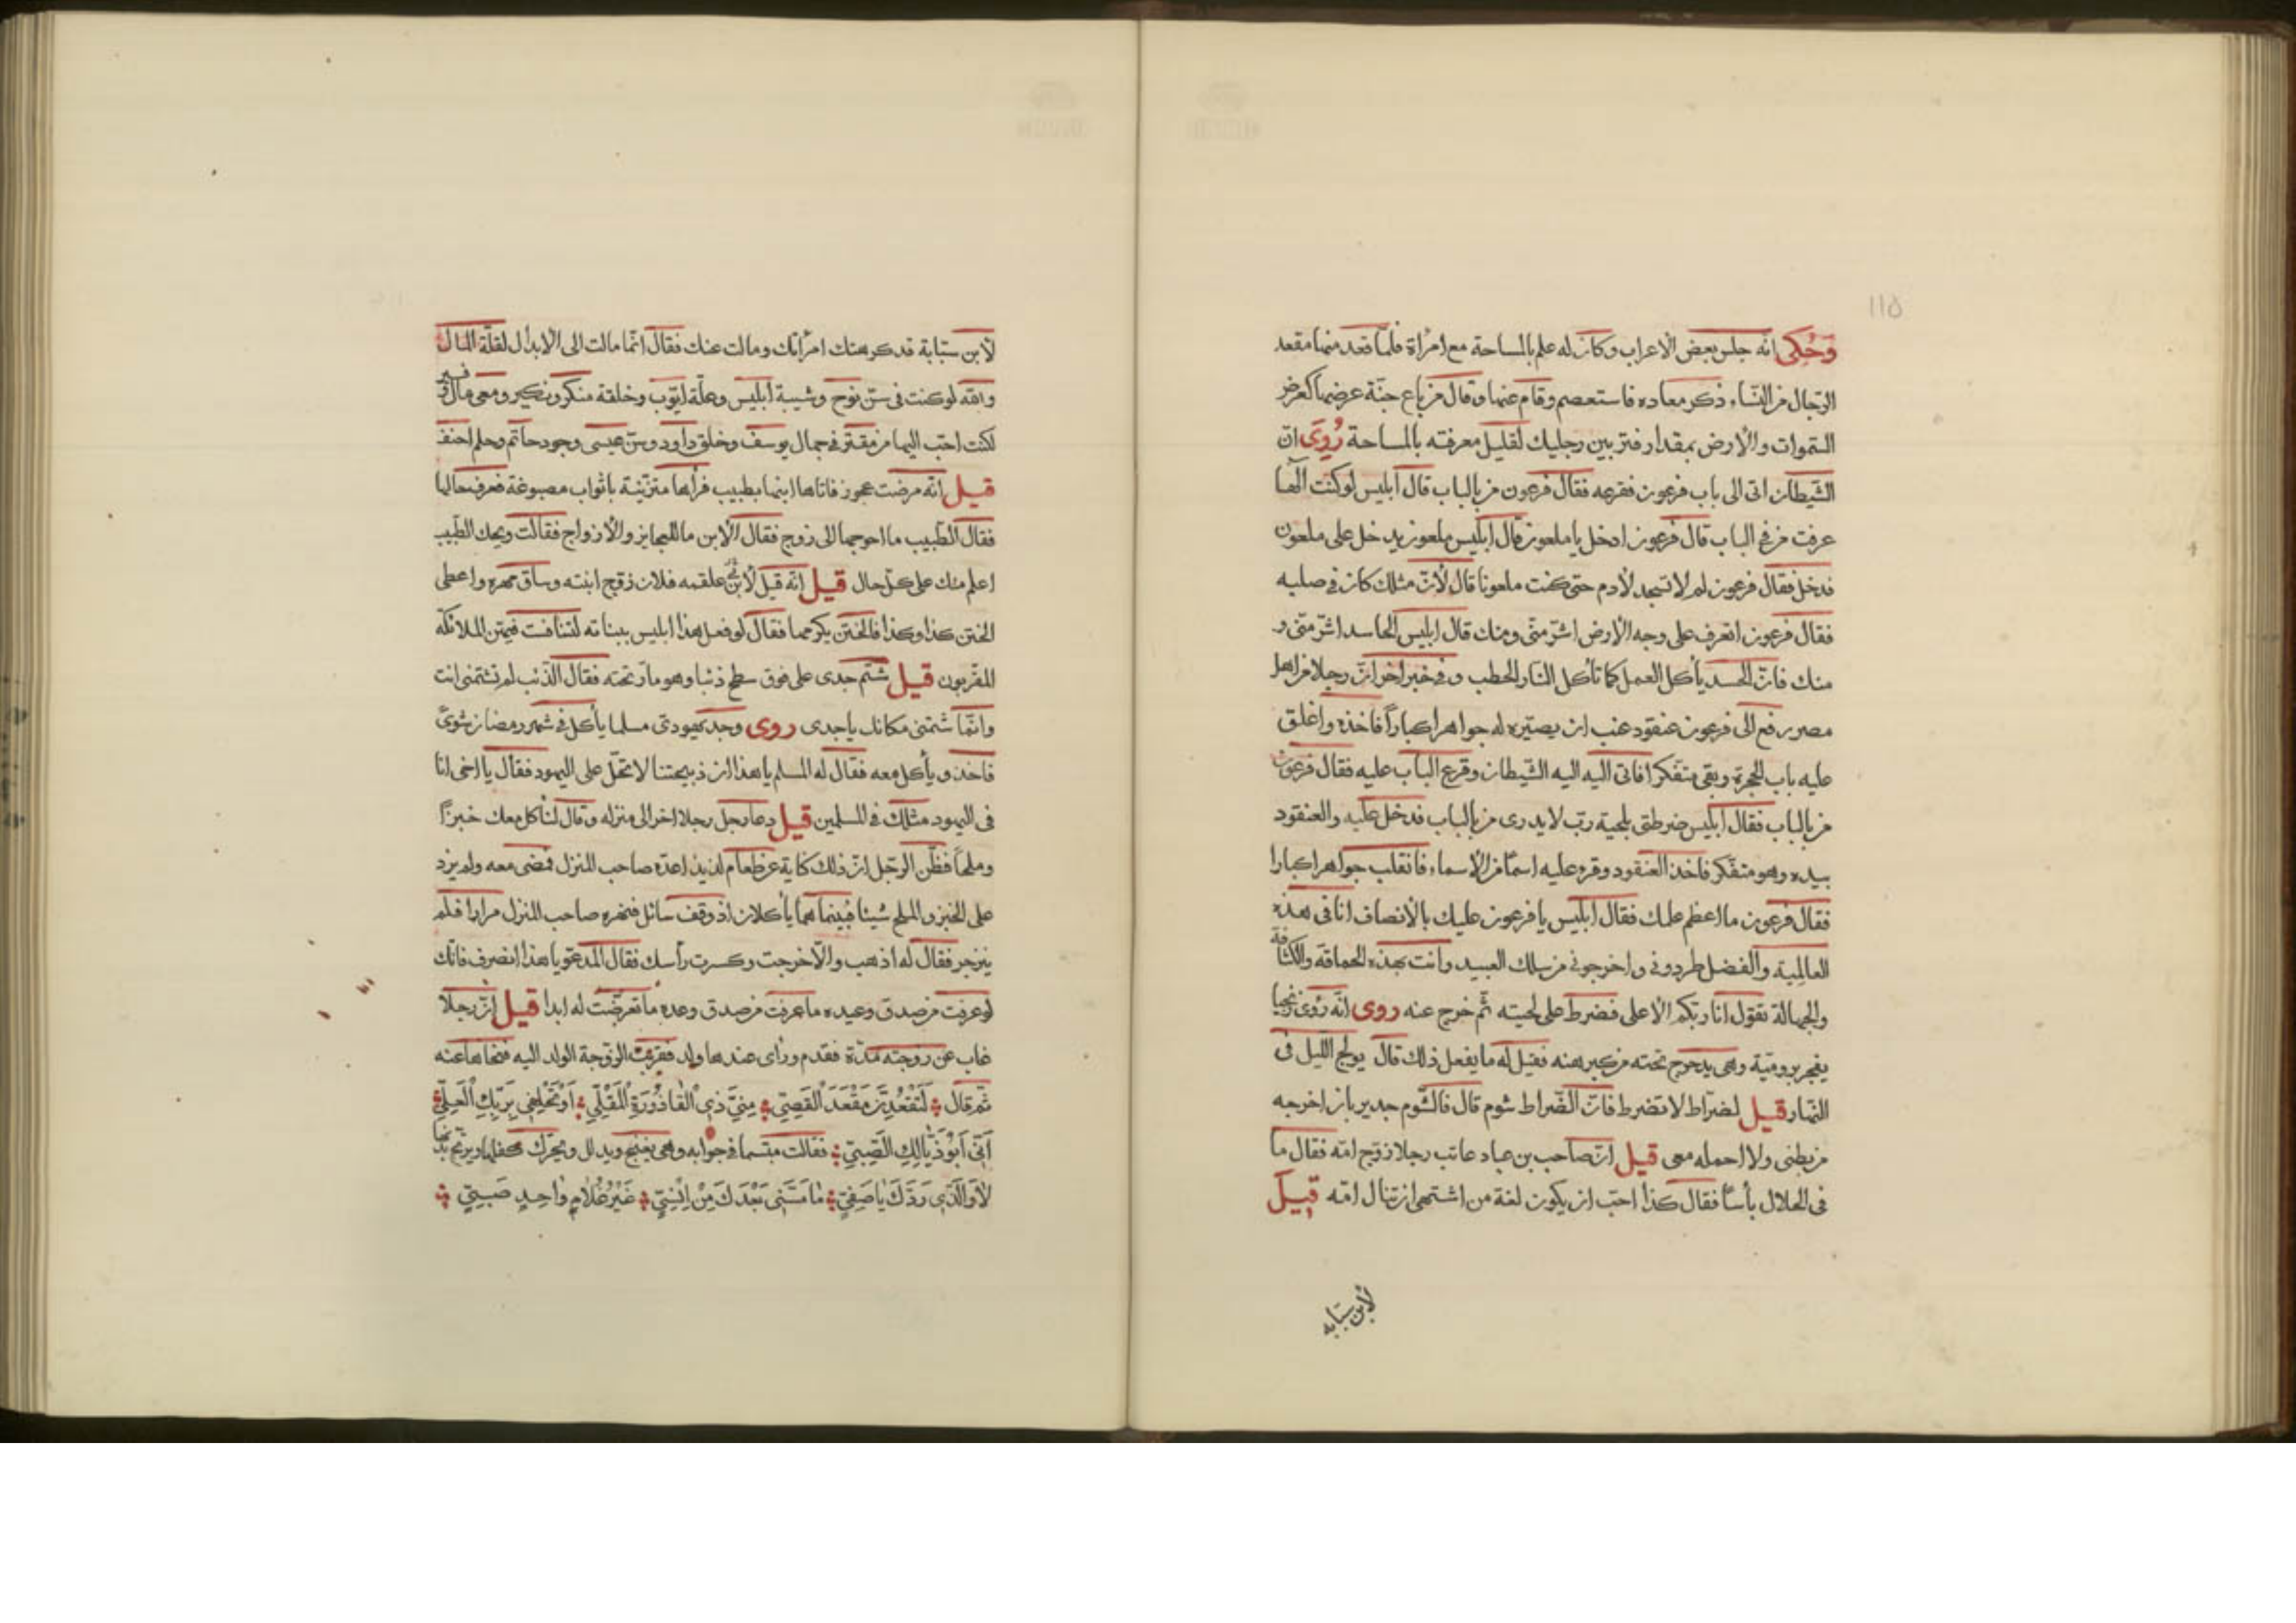 ١١٥
وَحُكِىَ انّه جلس بعض الأعراب وكان له علم بالمساحة مع امرأة فلمّا قعد منها مقعد
الرّجال من النّساء ذكر معاده فاستعصم وقام عنها وقال من باع جنّة عرضها كعرض
السّموات والأرض بمقدار فتر بين رجليك لقليل معرفته بالمساحة رُوِىَ انّ
الشّيطان اتى الى باب فرعون فقرعه فقال فرعون من بالباب قال ابليس لو كنت الٰها
عرفت من فى الباب قال فرعون ادخل يا ملعون قال ابليس ملعون يدخل على ملعون
فدخل فقال فرعون لم لا تسجد لأدم حتى كنت ملعونا قال لأنّ مثلك كان فى صلبه
فقال فرعون اتعرف على وجه الأرض اشرّ منّى ومنك قال ابليس الحاسد اشرّ منّى و
منك فانّ الحسد يأكل العمل كما تأكل النّار الحطب وفى خبر اخر انّ رجلا من اهل
مصر رفع الى فرعون عنقود عنب ان يصيّره له جواهرا كبارا فاخذه واغلق
عليه باب الحجرة وبقى متفكّرا فاتى اليه اليه الشّيطان وقرع الباب عليه فقال فرعون
من بالباب فقال ابليس ضرطتى بلحية ربّ لا يدرى من بالباب فدخل عليه والعنقود
بيده وهو متفكّر فاخذ العنقود وقرء عليه اسمًا من الأسماء فانقلب جواهرا كبارا
فقال فرعون ما اعظم علمك فقال ابليس يا فرعون عليك بالأنصاف انا فى هذه
العالميّة والفضل طردونى واخرجونى من سلك العبيد وانت بهذه الحماقة والكثافة
والجهالة تقول انا ربّكم الأعلى فضرط على لحيته ثمّ خرج عنه روى انّه رُوِىَ زنجيا
يفجر بروميّة وهى يدحرج تحته من كبر هنه فقيل له ما يفعل ذلك قال يولج اللّيل فى
النّهار قيل لضرّاط لا تضرط فانّ الضّراط شوم قال فالشّوم جدير بان اخرجه
من بطنى ولا احمله معى قيل انّ صاحب بن عباد عاتب رجلا زوّج امّه فقال ما
فى الحلال بأسًا فقال كذا احبّ ان يكون لغة من اشتهى ان تنال امّه قيل
لأبن سيّابه
لأبن سيّابة قد كرهتك امرأتك ومالت عنك فقال انّما مالت الى الأبدال لقلّة المال
والله لو كنت فى سنّ نوح وشيبة ابليس وعلّة ايّوب وخلقة منكر ونكير ومعى مال
لكنت احبّ اليها من مقتّر فى جمال يوسف وخلق داود وسنّ عيسى وجود حاتم وحلم احنف
قيل انّه مرضت عجوز فاتاها ابنها بطبيب فرأها متزيّنة باثواب مصبوغة فعرف حالها
فقال الطّبيب ما احوجها الى زوج فقال الأبن ما للعجايز والأزواج فقالت ويحك الطّبيب
اعلم منك على كلّ حال قيل انّه قيل لأبن علقمه فلان زوّج ابنته وساق مهره واعطى
الختن كذا وكذا فالختن يكرمها فقال لو فعل هذا ابليس ببناته لتنافست فيهنّ الملائكة
المقرّبون قيل شتم جدى على فوق سطح ذئبا وهو مارّ تحته فقال الذّئب لم تشتمنى انت
وانّما شتمنى مكانك يا جدى روى وجد يهودىّ مسلما يأكل فى شهر رمضان شوىً
فاخذ ويأكل معه فقال له المسلم يا هذا انّ ذبيحتنا لا تحلّ على اليهود فقال يا اخى انا
فى اليهود مثلك فى المسلمين قيل دعا رجل رجلا اخر الى منزله وقال لنأكل معك خبزًا
وملحًا فظنّ الرّجل انّ ذلك كناية عن طعام لذيذ اعدّه صاحب المنزل فمضى معه ولم يزد
على الخبز والملح شيئا فبينما هما يأكلان اذ وقف سائل فنهره صاحب المنزل مرارا فلم
ينزجر فقال له اذهب والّا خرجت وكسرت رأسك فقال المدعوّ يا هذا انصرف فانّك
لو عرفت من صدق وعيده ما عرفت من صدق وعده ما تعرّضت له ابدا قيل انّ رجلا
غاب عن زوجته مدّة فقدم وراى عندها ولد فقرّبت الزّوجة الولد اليه فنحاها عنه
ثمّ قال لَتَقْعُدِنَّ مَقْعَدَ الْقَصِيّ مِنِّيَ ذِي الْقَاذُورَةِ الْمَقْلِيّ اَوْ تَحْلِفِي بِرَبِّكِ الْعَلِيّ
اَنّى اَبُو ذَيَّالِكِ الصَّبِيّ فقالت مبتسما فى جوابه وهى يغنج ويدلل ويحرّك كفلها ويرتّج
لَا وَالَّذِى رَدَّكَ يَا صَفِيّ مَا مَسَّنِى بَعْدَكَ مِنْ اِنْسِيّ غَيْرُ غُلَامٍ وَاحِدٍ صَبِيّ